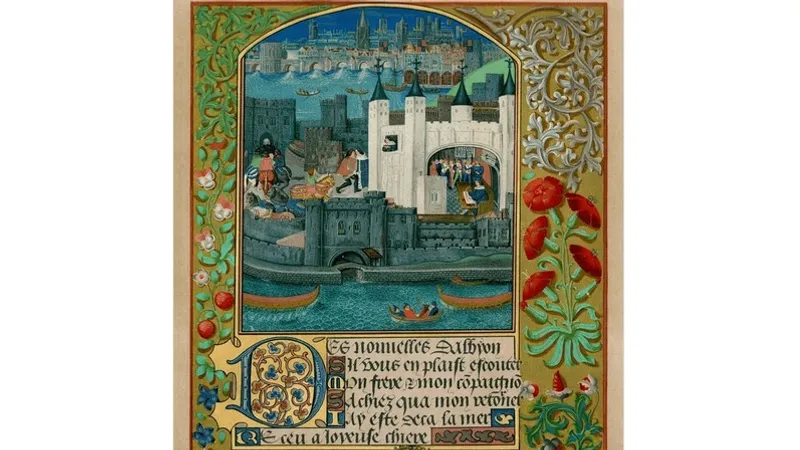 DES nouvelles Dalbyon
SIl vous en plaist escouter
MOn frere & mon cõpaigno
SAchiez qua mon retorner
IAy este deca la mer
REceu a Joyeuse chiere